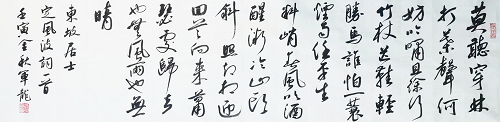 莫聽穿林
打葉聲何
妨吟嘯且徐行
竹杖芒鞋輕
勝馬誰怕一蓑
煙雨任平生
料峭春風吹酒
醒微冷山頭
斜照却相迎
回首向來蕭
瑟處歸去
也無風雨也無
晴
東坡居士
定風波詞一首
壬寅金秋軍龍